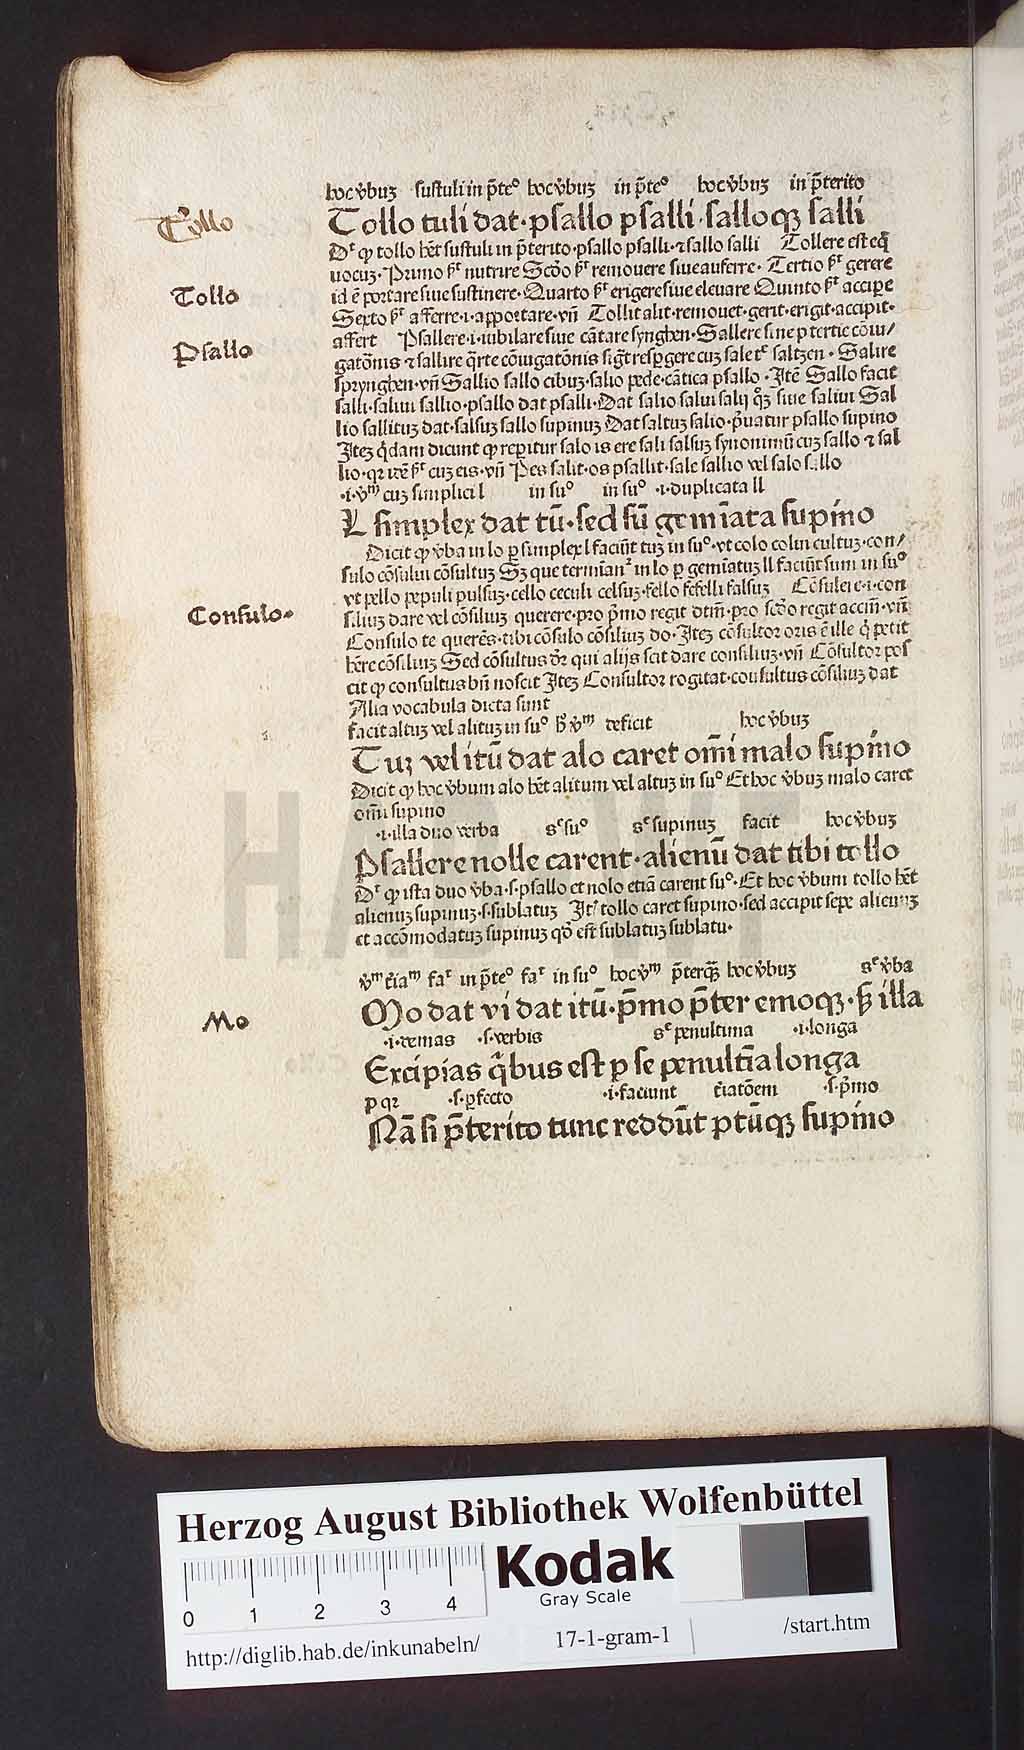 hoc v̓buʒ sustuli in p̄teᵒ hoc v̓buʒ in p̄teᵒ hoc v̓buʒ in p̄terito
Tollo
Tollo tuli dat·psallo psalli·salloqʒ salli
Dʳ ꝙ tollo hēt sustuli in p̄terito·psallo psalli·⁊ sallo salli Tollere est eq̄
uocuʒ·Primo sʳ nutrire Scd̓o sʳ remouere siue auferre·Tertio sʳ gerere
Tollo
id ē portare siue sustinere·Quarto sʳ erigere siue eleuare Quinto sʳ accipe
Sexto sʳ afferre·i·apportare·vn̄ Tollit alit·remouet·gerit·erigit·accipit·
Psallo
affert Psallere·i·iubilare siue cātare synghen·Sallere sine p tertie cōiu/
gatōnis ⁊ sallire q̄rte cōiugatōnis sigt̄ respgere cuʒ sale tᶜ saltzen·Salire
sprynghen·vn̄ Sallio sallo cibuʒ·salio pede·cātica psallo·Itē Sallo facit
salli·saliui sallio·psallo dat psalli·Dat salio salui salij qʒ siue saliui Sal
lio sallituʒ dat·salsuʒ sallo supinuʒ Dat saltuʒ salio·p̄uatur psallo supino
Iteʒ q̄dam dicunt ꝙ repitur salo is ere sali salsuʒ synonimū cuʒ sallo ⁊ sal
lio·qꝛ idē sʳ cuʒ eis·vn̄ Pes salit·os psallit·sale sallio vel salo sallo
·i·v̓ᵐ cuʒ simplici l in suᵒ in suᵒ ·i·duplicata ll
L simplex dat tū·sed sū gemīata supino
Dicit ꝙ v̓ba in lo p simplex l faciūt tuʒ in suᵒ·vt colo colui cultuʒ·con/
sulo cōsului cōsultuʒ Sʒ que terminanᵗ in lo p geminatuʒ ll faciūt sum in suᵒ
vt pello pepuli pulsuʒ·cello ceculi celsuʒ·fello fefelli falsuʒ Cōsulere·i·con
Consulo·
siliuʒ dare vel cōsiliuʒ querere·pro p̄mo regit dtm̄·pro scd̓o regit accm̄·vn̄
Consulo te querēs·tibi cōsulo cōsiliuʒ do·Iteʒ cōsultor oris ē ille q̄ petit
hēre cōsiliuʒ Sed cōsultus dr̄ qui alijs scit dare consiliuʒ·vn̄ Cōsultor pos
cit ꝙ consultus bn̄ noscit Iteʒ Consultor rogitat·consultus cōsiliuʒ dat
Alia vocabula dicta sunt
facit altuʒ vel alituʒ in suᵒ h̓ v̓ᵐ deficit hoc v̓buʒ
Tuʒ vel itū dat alo caret om̄i malo supino
Dicit ꝙ hoc v̓bum alo hēt alitum vel altuʒ in suᵒ Et hoc v̓buʒ malo caret
om̄i supino
·i·illa duo verba sᶜ suᵒ sᶜ supinuʒ facit hoc v̓buʒ
Psallere nolle carent·alienū dat tibi tollo
Dʳ ꝙ ista duo v̓ba·s·psallo et nolo etiā carent suᵒ·Et hoc v̓bum tollo hēt
alienuʒ supinuʒ·s·sublatuʒ Itē tollo caret supino·sed accipit sepe alienuʒ
et accōmodatuʒ supinuʒ qd̓ est sublatuʒ sublatu·
v̓ᵐ t̓iaᵐ faᶜ in p̄teᵒ faᶜ in suᵒ hoc v̓ᵐ p̄terqʒ hoc v̓buʒ sᶜ v̓ba
Mo
Mo dat vi dat itū·p̄mo p̄ter emoqʒ·sʒ illa
·i·demas ·s·verbis sᶜ penultima ·i·longa
Excipias q̄bus est p se penultīa longa
p qꝛ ·s·pfecto ·i·faciunt t̓iatōem ·s·p̄mo
Nā si p̄terito tunc reddūt ptūqʒ supino
HAB WF
Herzog August Bibliothek Wolfenbüttel
Kodak
Gray Scale
0 1 2 3 4
http://diglib.hab.de/inkunabeln/ 17-1-gram-1 /start.htm